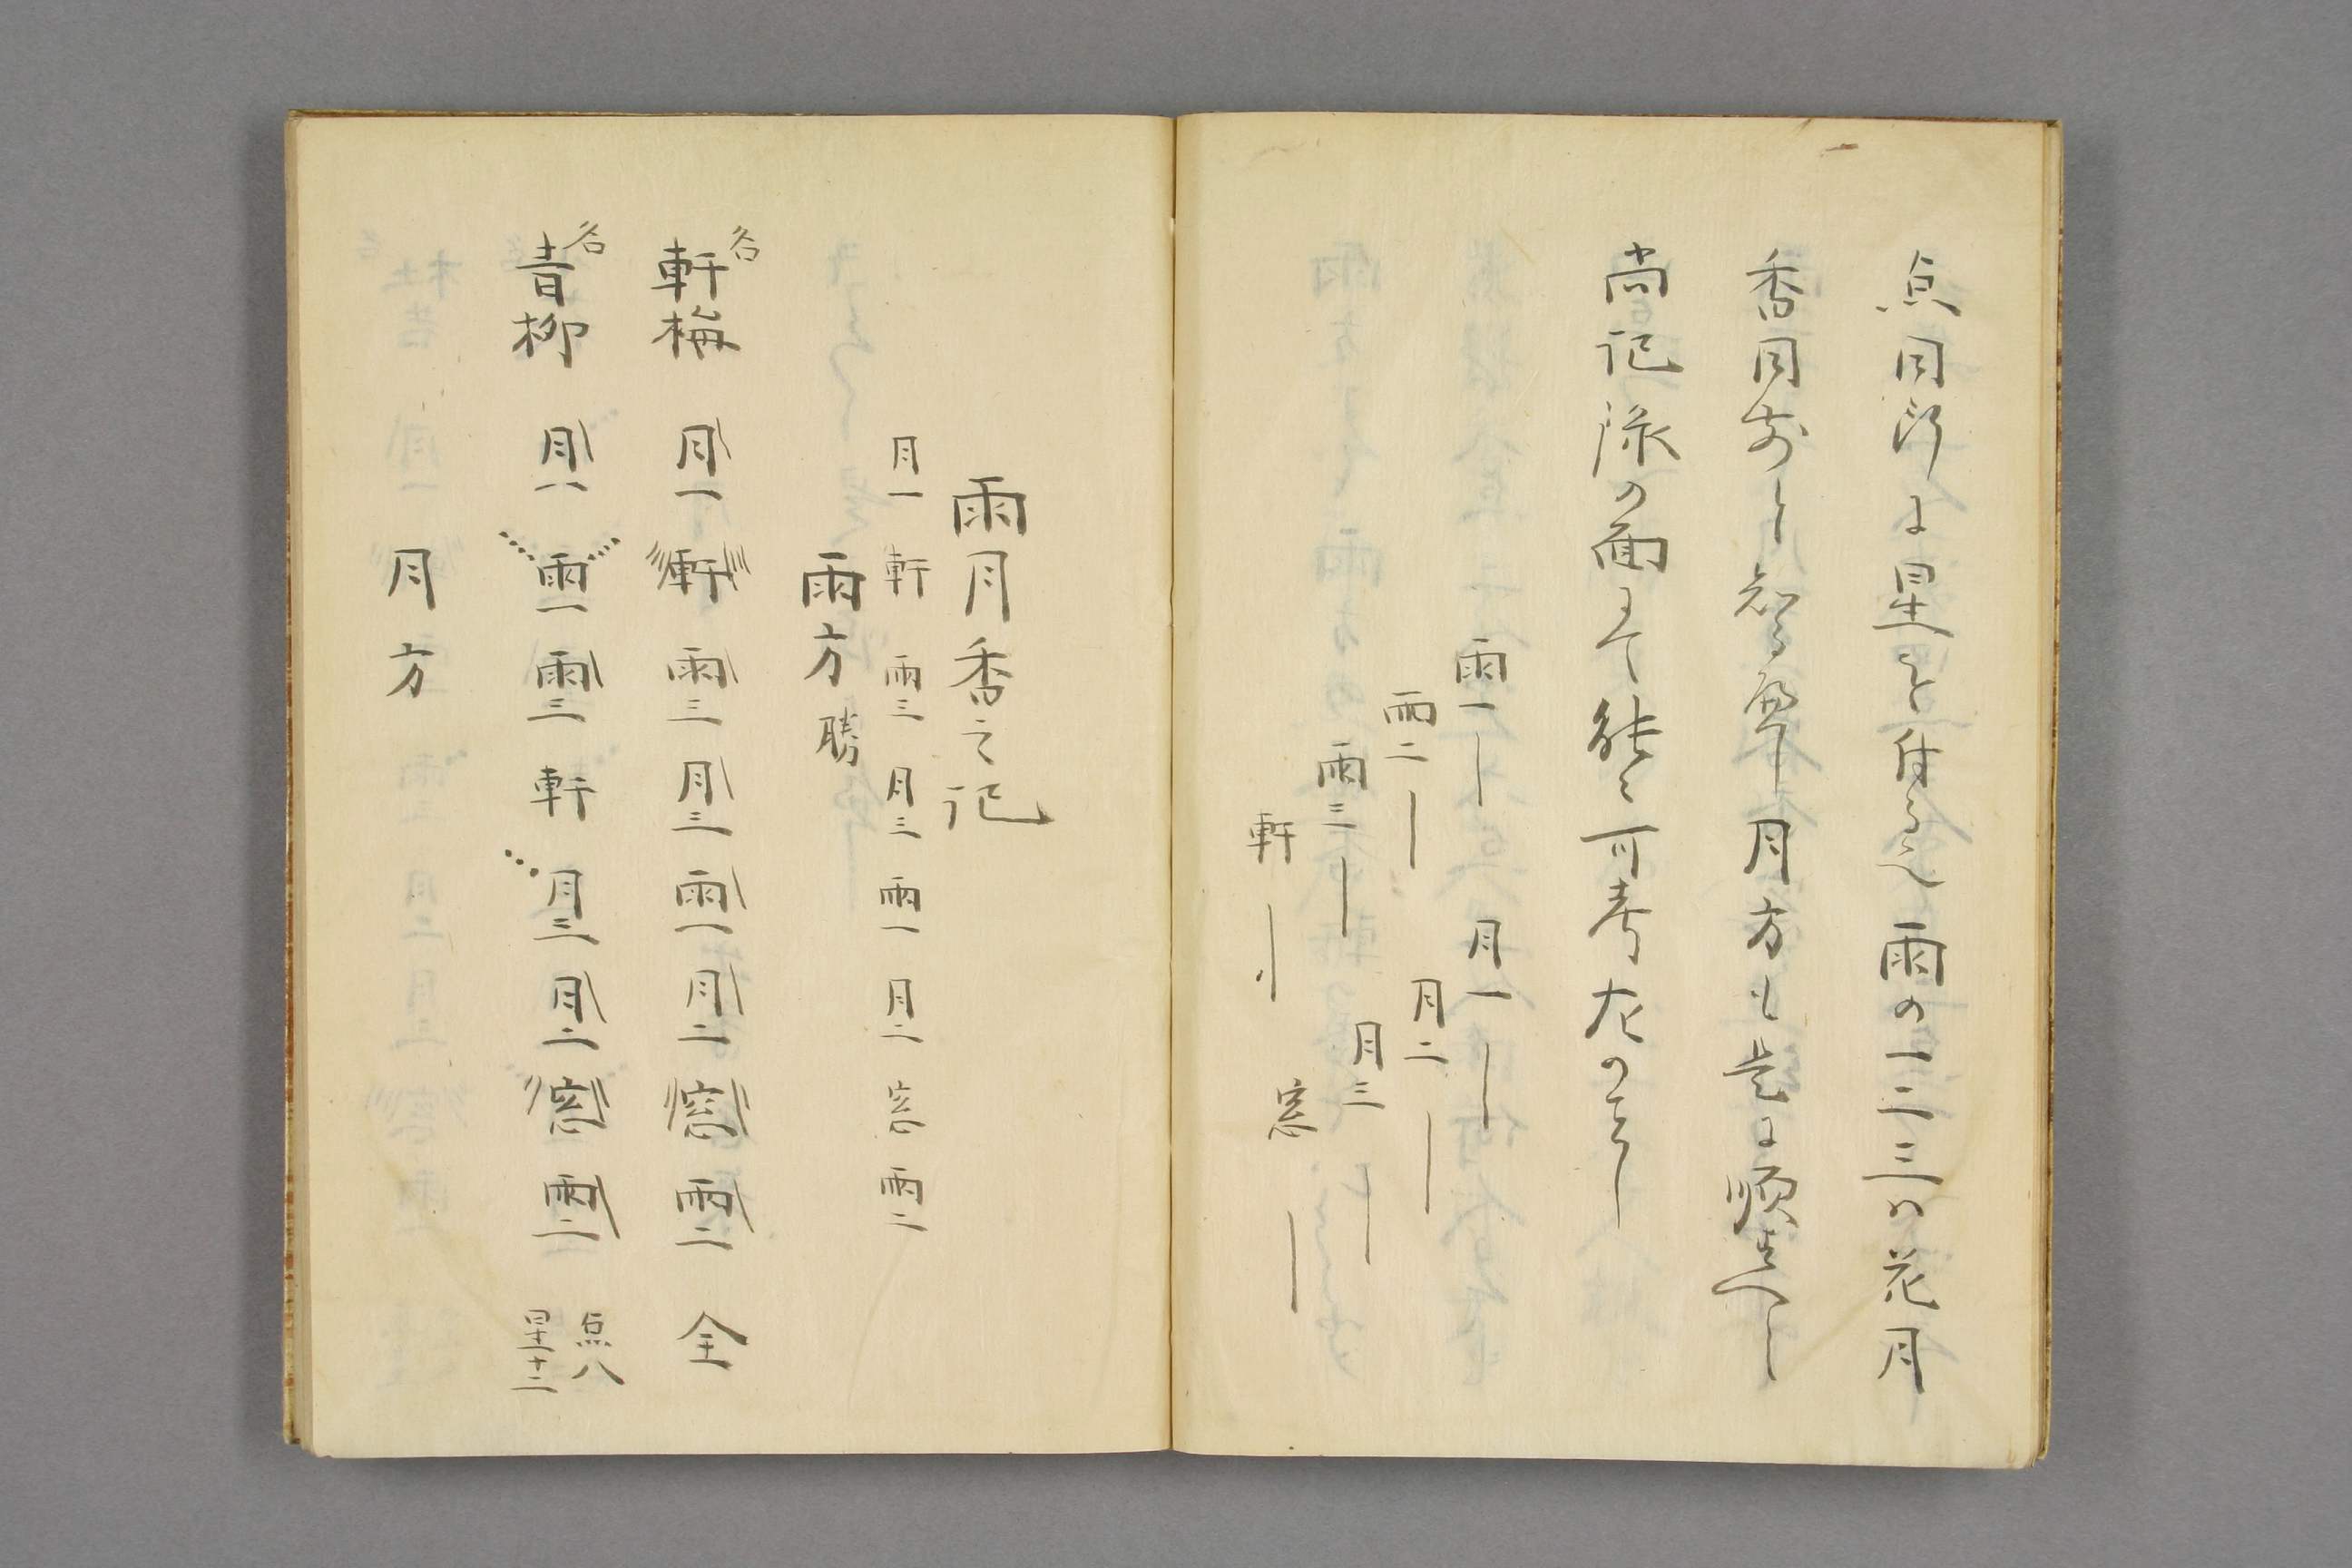 点同断に星を付る也雨の一二三ハ花月
香同前と知るへし月方も是に順すへし
尚記録の面にて能々可考左のことし
雨一 月一
雨二 月二
雨三 月三
軒 窓
雨月香之記
月一 軒 雨三 月三 雨一 月二 窓 雨二
雨方勝
名
軒梅 月一 軒 雨三 月三 雨一 月二 窓 雨二 全
名
青柳 月一 雨一 雨三 軒 月三 月二 窓 雨二 点八 星十二
月方